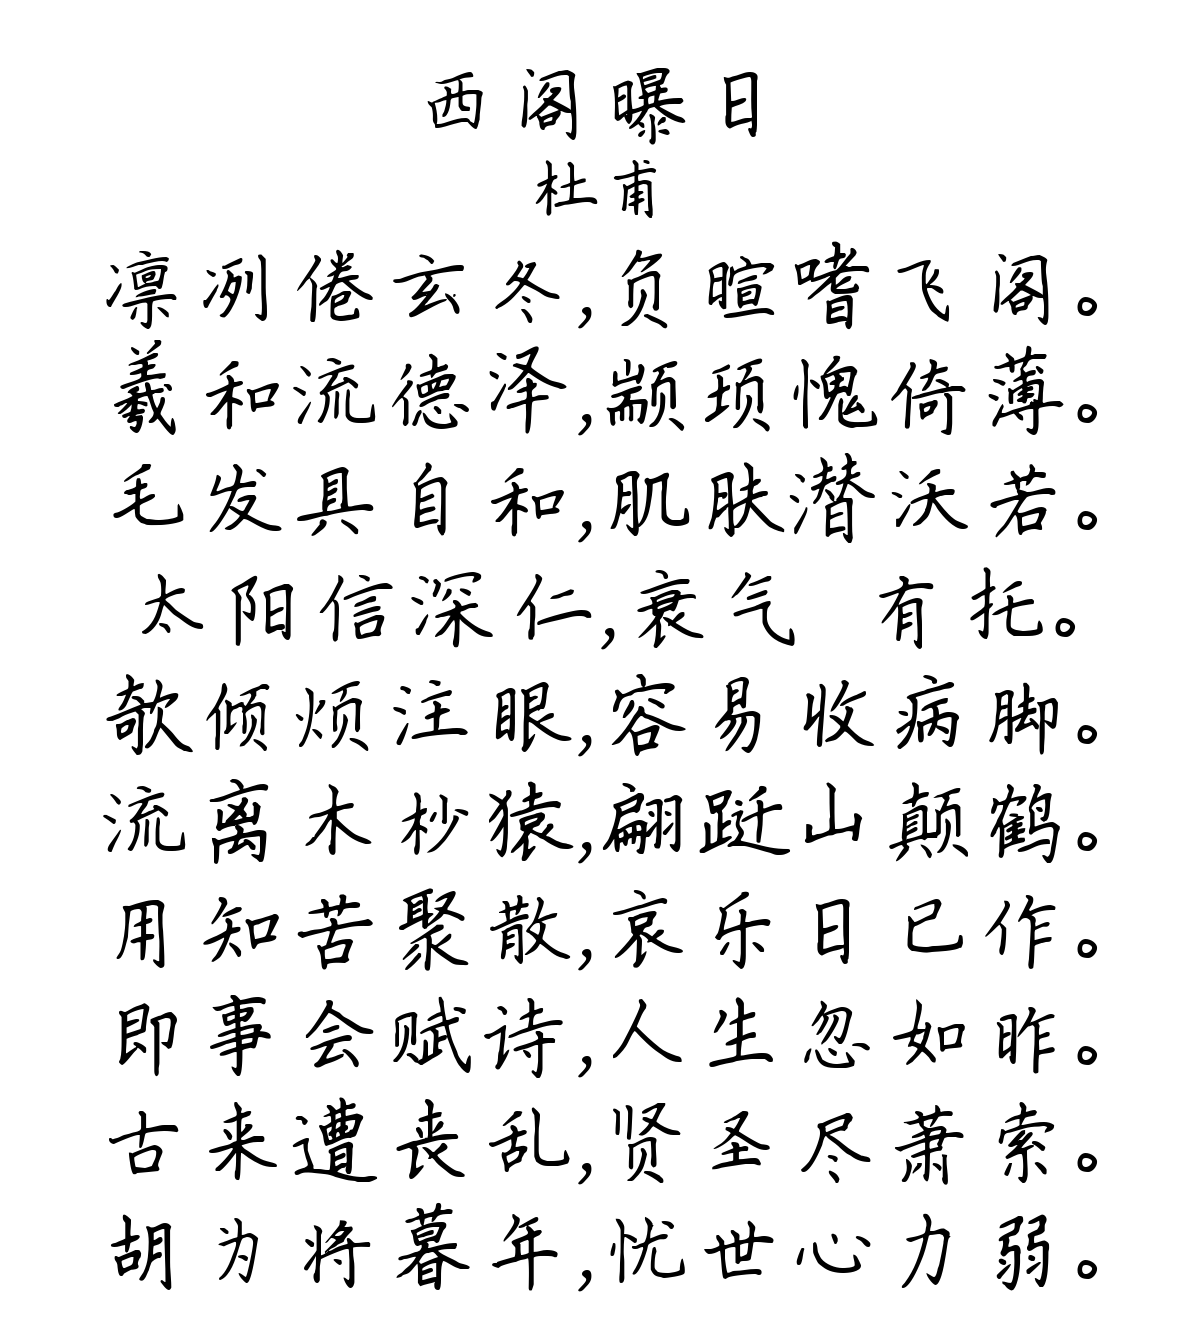 西阁曝日
杜甫
凛冽倦玄冬,负暄嗜飞阁。
羲和流德泽,颛顼愧倚薄。
毛发具自和,肌肤潜沃若。
太阳信深仁,衰气 有托。
欹倾烦注眼,容易收病脚。
流离木杪猿,翩跹山颠鹤。
用知苦聚散,哀乐日已作。
即事会赋诗,人生忽如昨。
古来遭丧乱,贤圣尽萧索。
胡为将暮年,忧世心力弱。